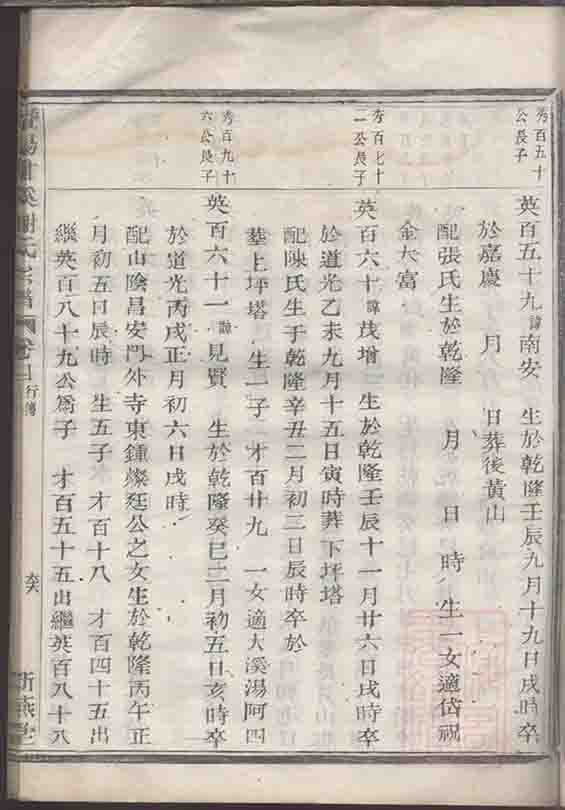 秀百五十
公長子
英百五十九諱南安 生於乾隆壬辰九月十九日戌時卒
於嘉慶 月 日葬後黄山
配張氏生於乾隆 月 日 時 生一女適岱祝
金大富
秀百七十
二公長子
英百六十諱茂增 生於乾隆壬辰十一月廿六日戌時卒
於道光乙未九月十五日寅時葬下坪塔
配陳氏生于乾隆辛丑二月初三日辰時卒於
墓上坪塔 生一子 才百廿九 一女適大溪湯阿四
秀百九十
六公長子
英百六十一諱見賢 生於乾隆癸巳二月初五日亥時卒
於道光丙戌正月初六日戌時
配山陰昌安門外寺東鍾燦廷公之女生於乾隆丙午正
月初五日辰時 生五子 才百十八 才百四十五出
繼英百八十九公爲子 才百五十五出繼英百八十八
謝氏宗譜 卷 行傳